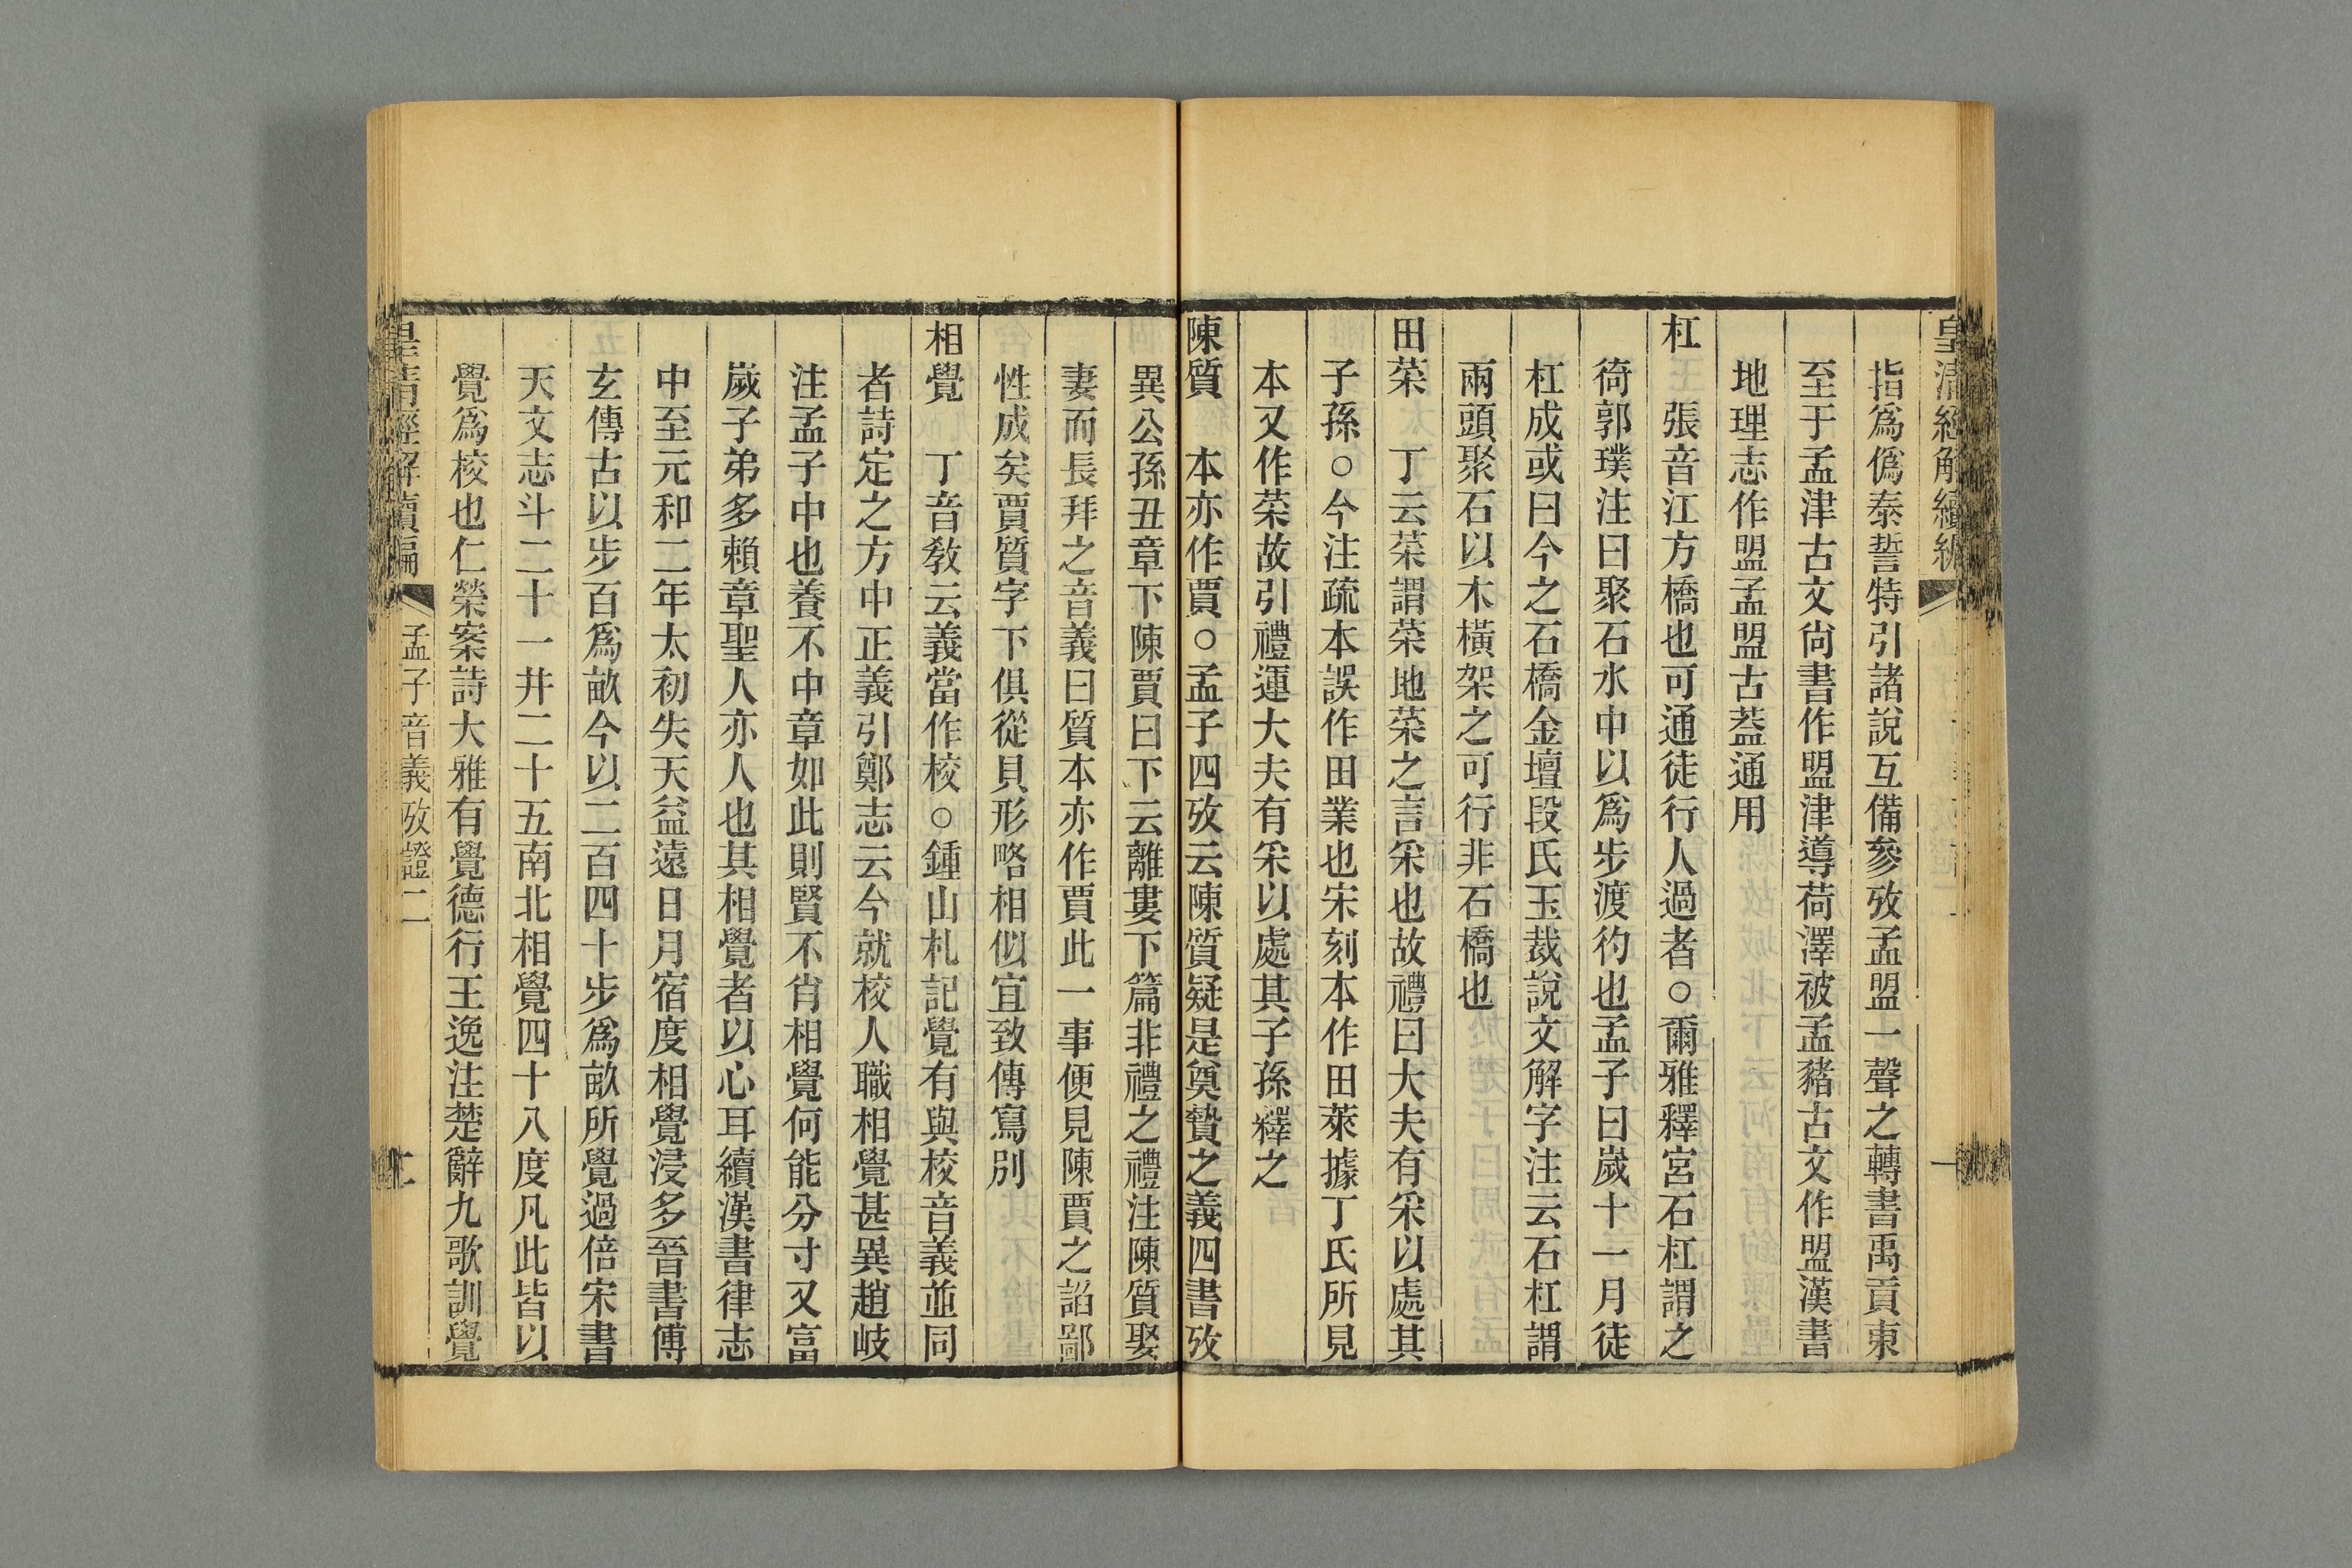 皇清經解續編
一
指爲僞泰誓特引諸說互備參攷孟盟一聲之轉書禹貢東
至于孟津古文尙書作盟津導荷澤被孟豬古文作盟漢書
地理志作盟孟盟古葢通用
杠　張音江方橋也可通徒行人過者○爾雅釋宮石杠謂之
徛郭璞注曰聚石水中以爲步渡彴也孟子曰歲十一月徒
杠成或曰今之石橋金壇段氏玉裁說文解字注云石杠謂
兩頭聚石以木橫架之可行非石橋也
田菜　丁云菜謂菜地菜之言采也故禮曰大夫有采以處其
子孫○今注疏本誤作田業也宋刻本作田萊據丁氏所見
本又作菜故引禮運大夫有采以處其子孫釋之
陳質　本亦作賈○孟子四攷云陳質疑是奠贄之義四書攷
異公孫丑章下陳賈曰下云離婁下篇非禮之禮注陳質娶
妻而長拜之音義曰質本亦作賈此一事便見陳賈之諂鄙
性成矣賈質字下俱從貝形略相似宜致傳寫別
相覺　丁音敎云義當作校○鍾山札記覺有與校音義並同
者詩定之方中正義引鄭志云今就校人職相覺甚異趙岐
注孟子中也養不中章如此則賢不肖相覺何能分寸又富
歲子弟多賴章聖人亦人也其相覺者以心耳續漢書律志
中至元和二年太初失天益遠日月宿度相覺浸多晉書傅
玄傳古以步百爲畝今以二百四十步爲畝所覺過倍宋書
天文志斗二十一井二十五南北相覺四十八度凡此皆以
覺爲校也仁榮案詩大雅有覺德行王逸注楚辭九歌訓覺
皇清經解續編
孟子音義攷證二
二